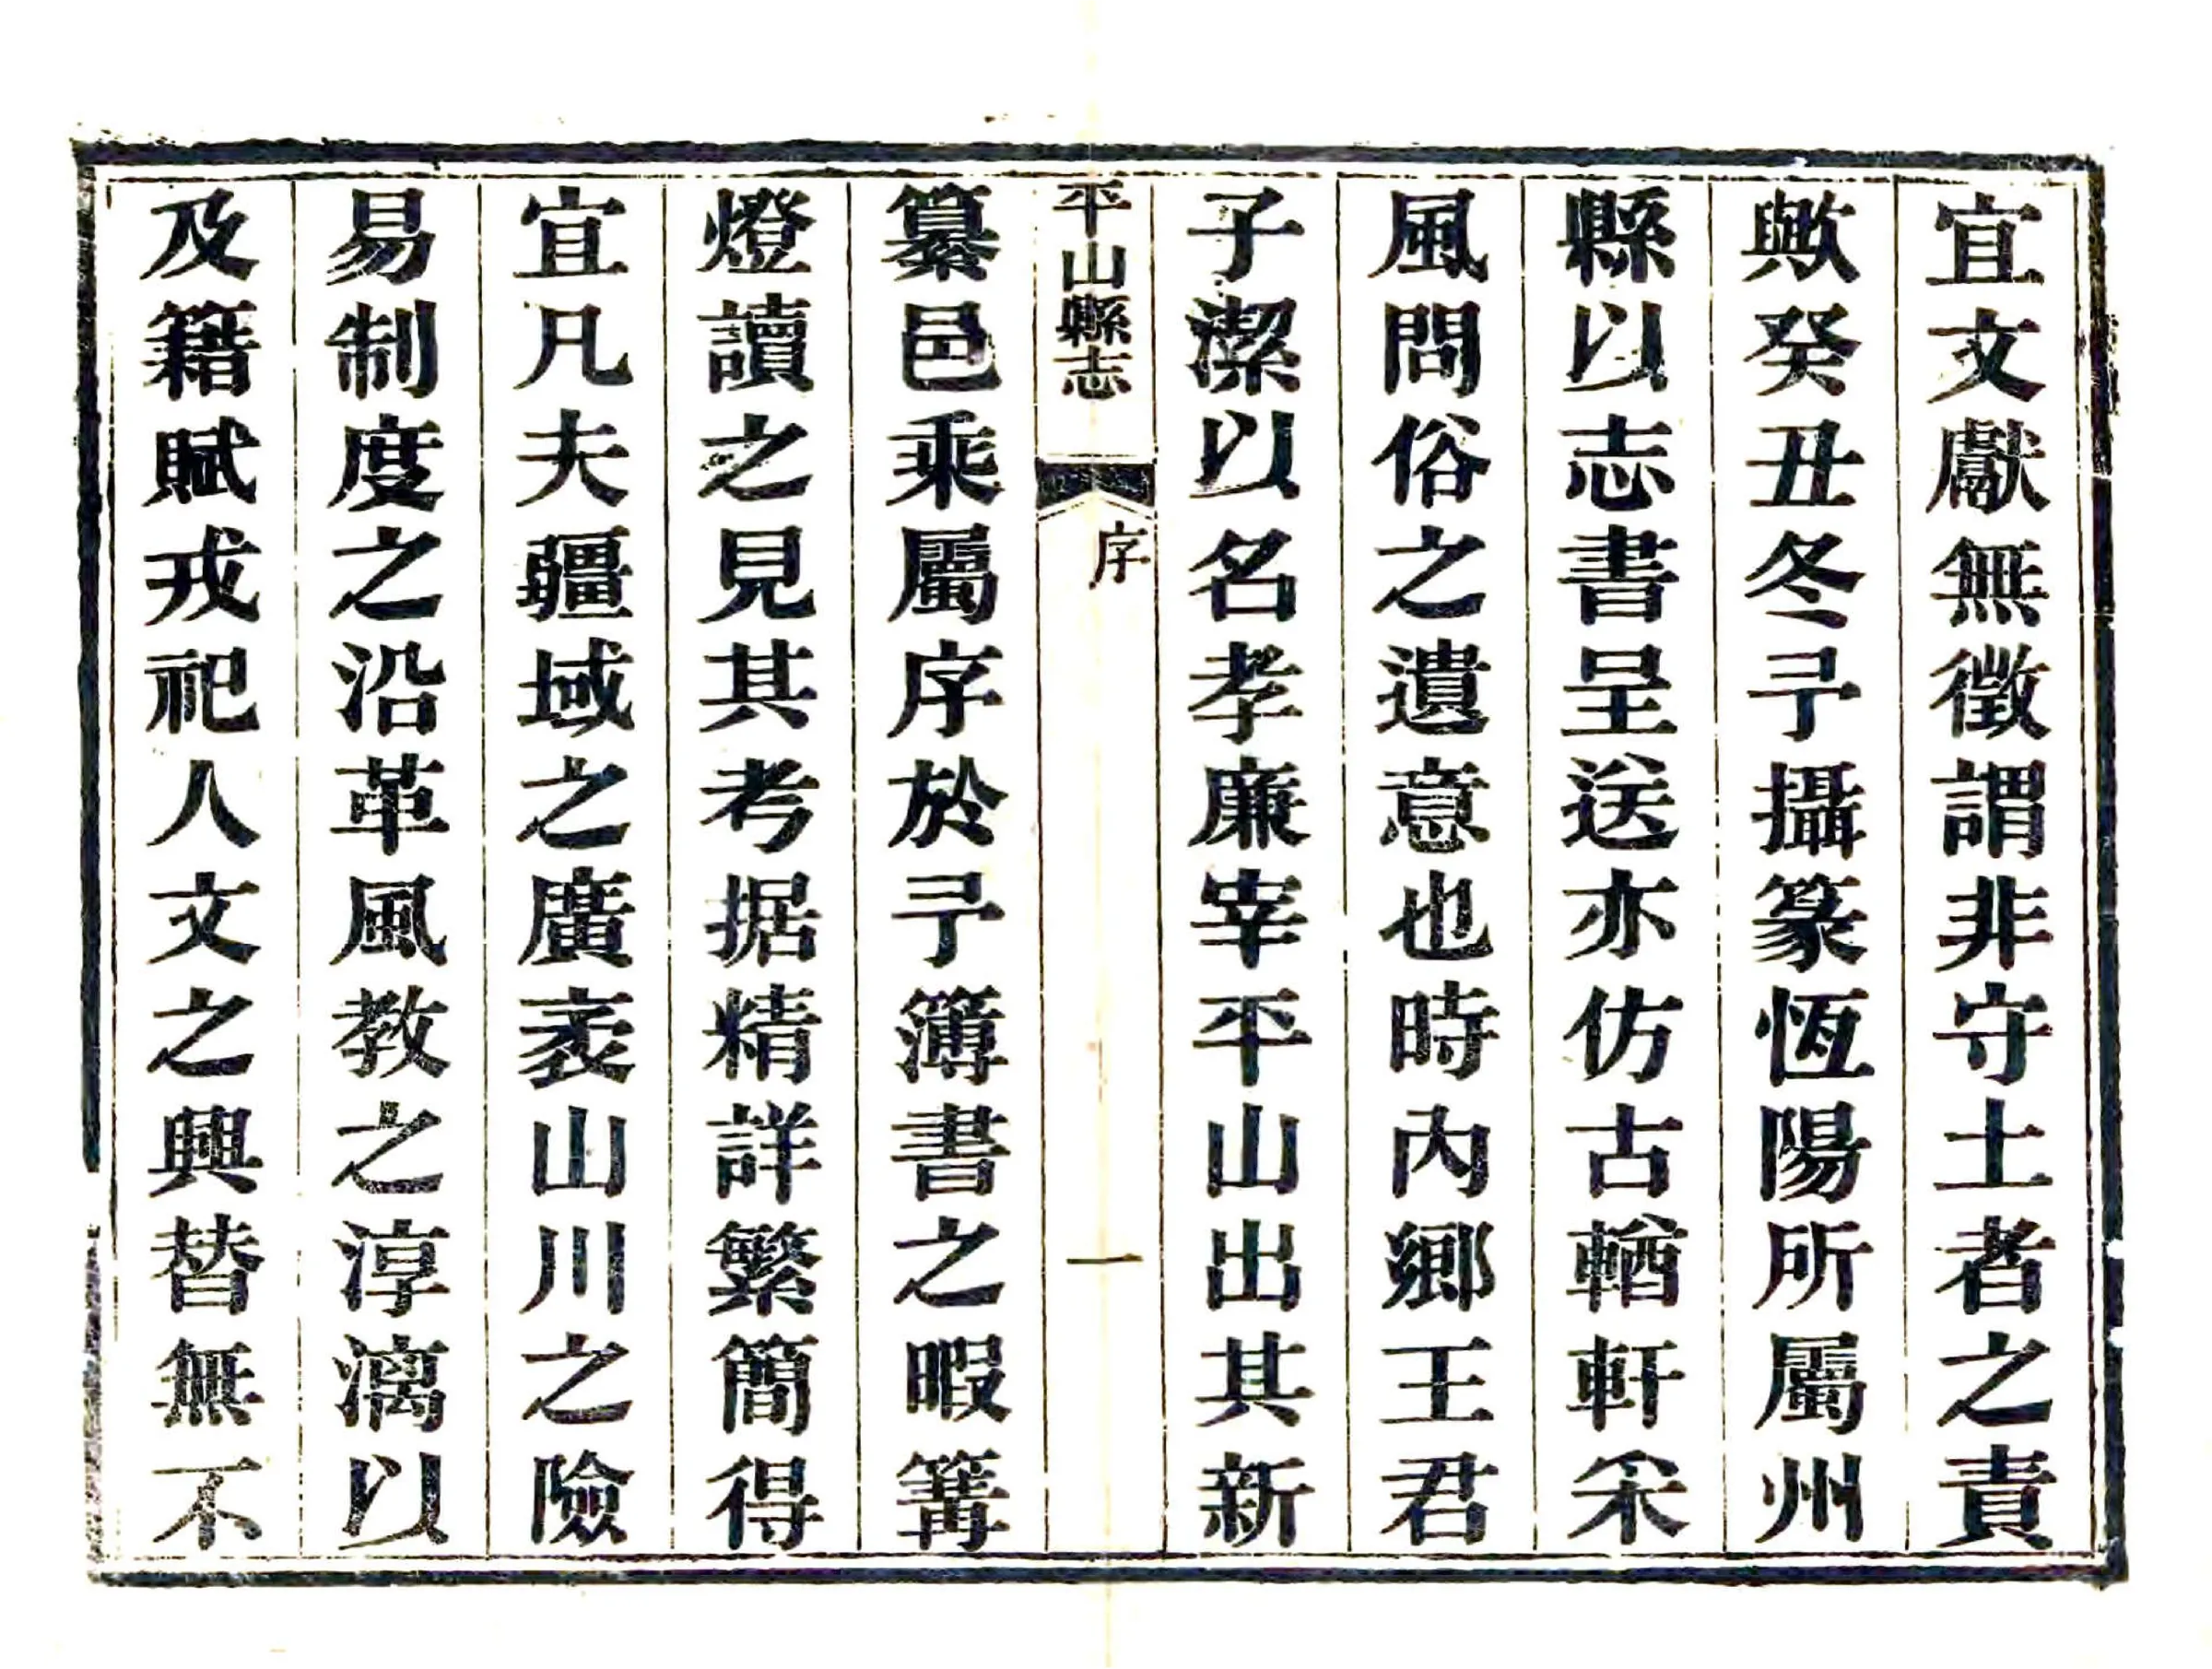 宜文獻無徵謂非守土者之責
歟癸丑冬予攝篆恆陽所屬州
縣以志書呈送亦仿古輶軒采
風問俗之遺意也時內鄉王君
子潔以名孝廉宰平山出其新
平山縣志 序 一
纂邑乘屬序於予簿書之暇篝
燈讀之見其考据精詳繁簡得
宜凡夫疆域之廣袤山川之險
易制度之沿革風教之淳漓以
及籍賦戎祀人文之興替無不